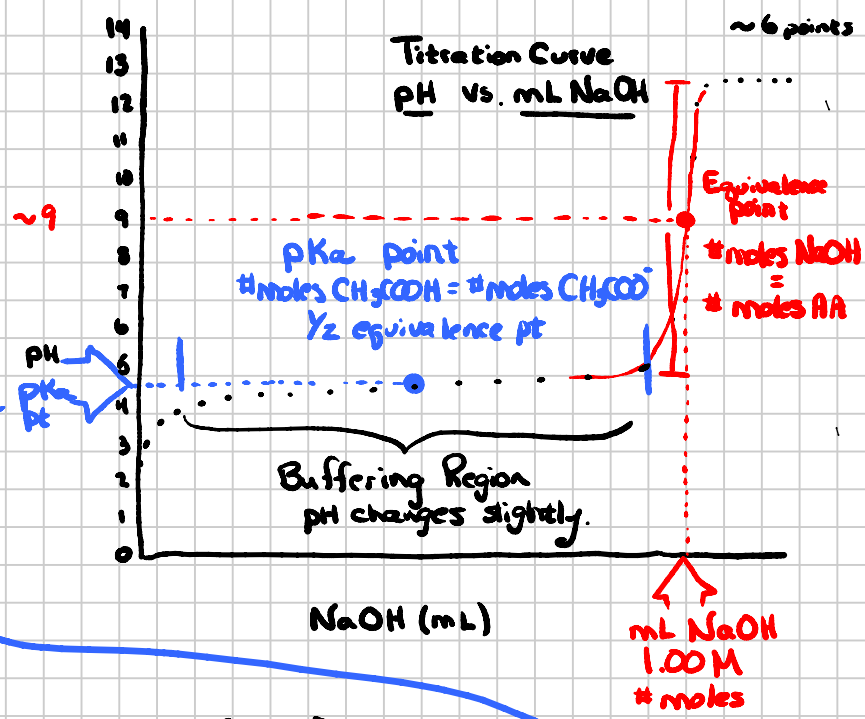 ~6 points
Titration Curve
pH vs. mL NaOH
14
13
12
11
10
9
8
7
6
5
4
3
2
1
0
~9
Equivalence
point
#moles NaOH
=
# moles AA
pKa point
#moles CH3COOH = #moles CH3COO-
1/2 equivalence pt
pH
pKa
pt
Buffering Region
pH changes slightly.
NaOH (mL)
mL NaOH
1.00 M
# moles